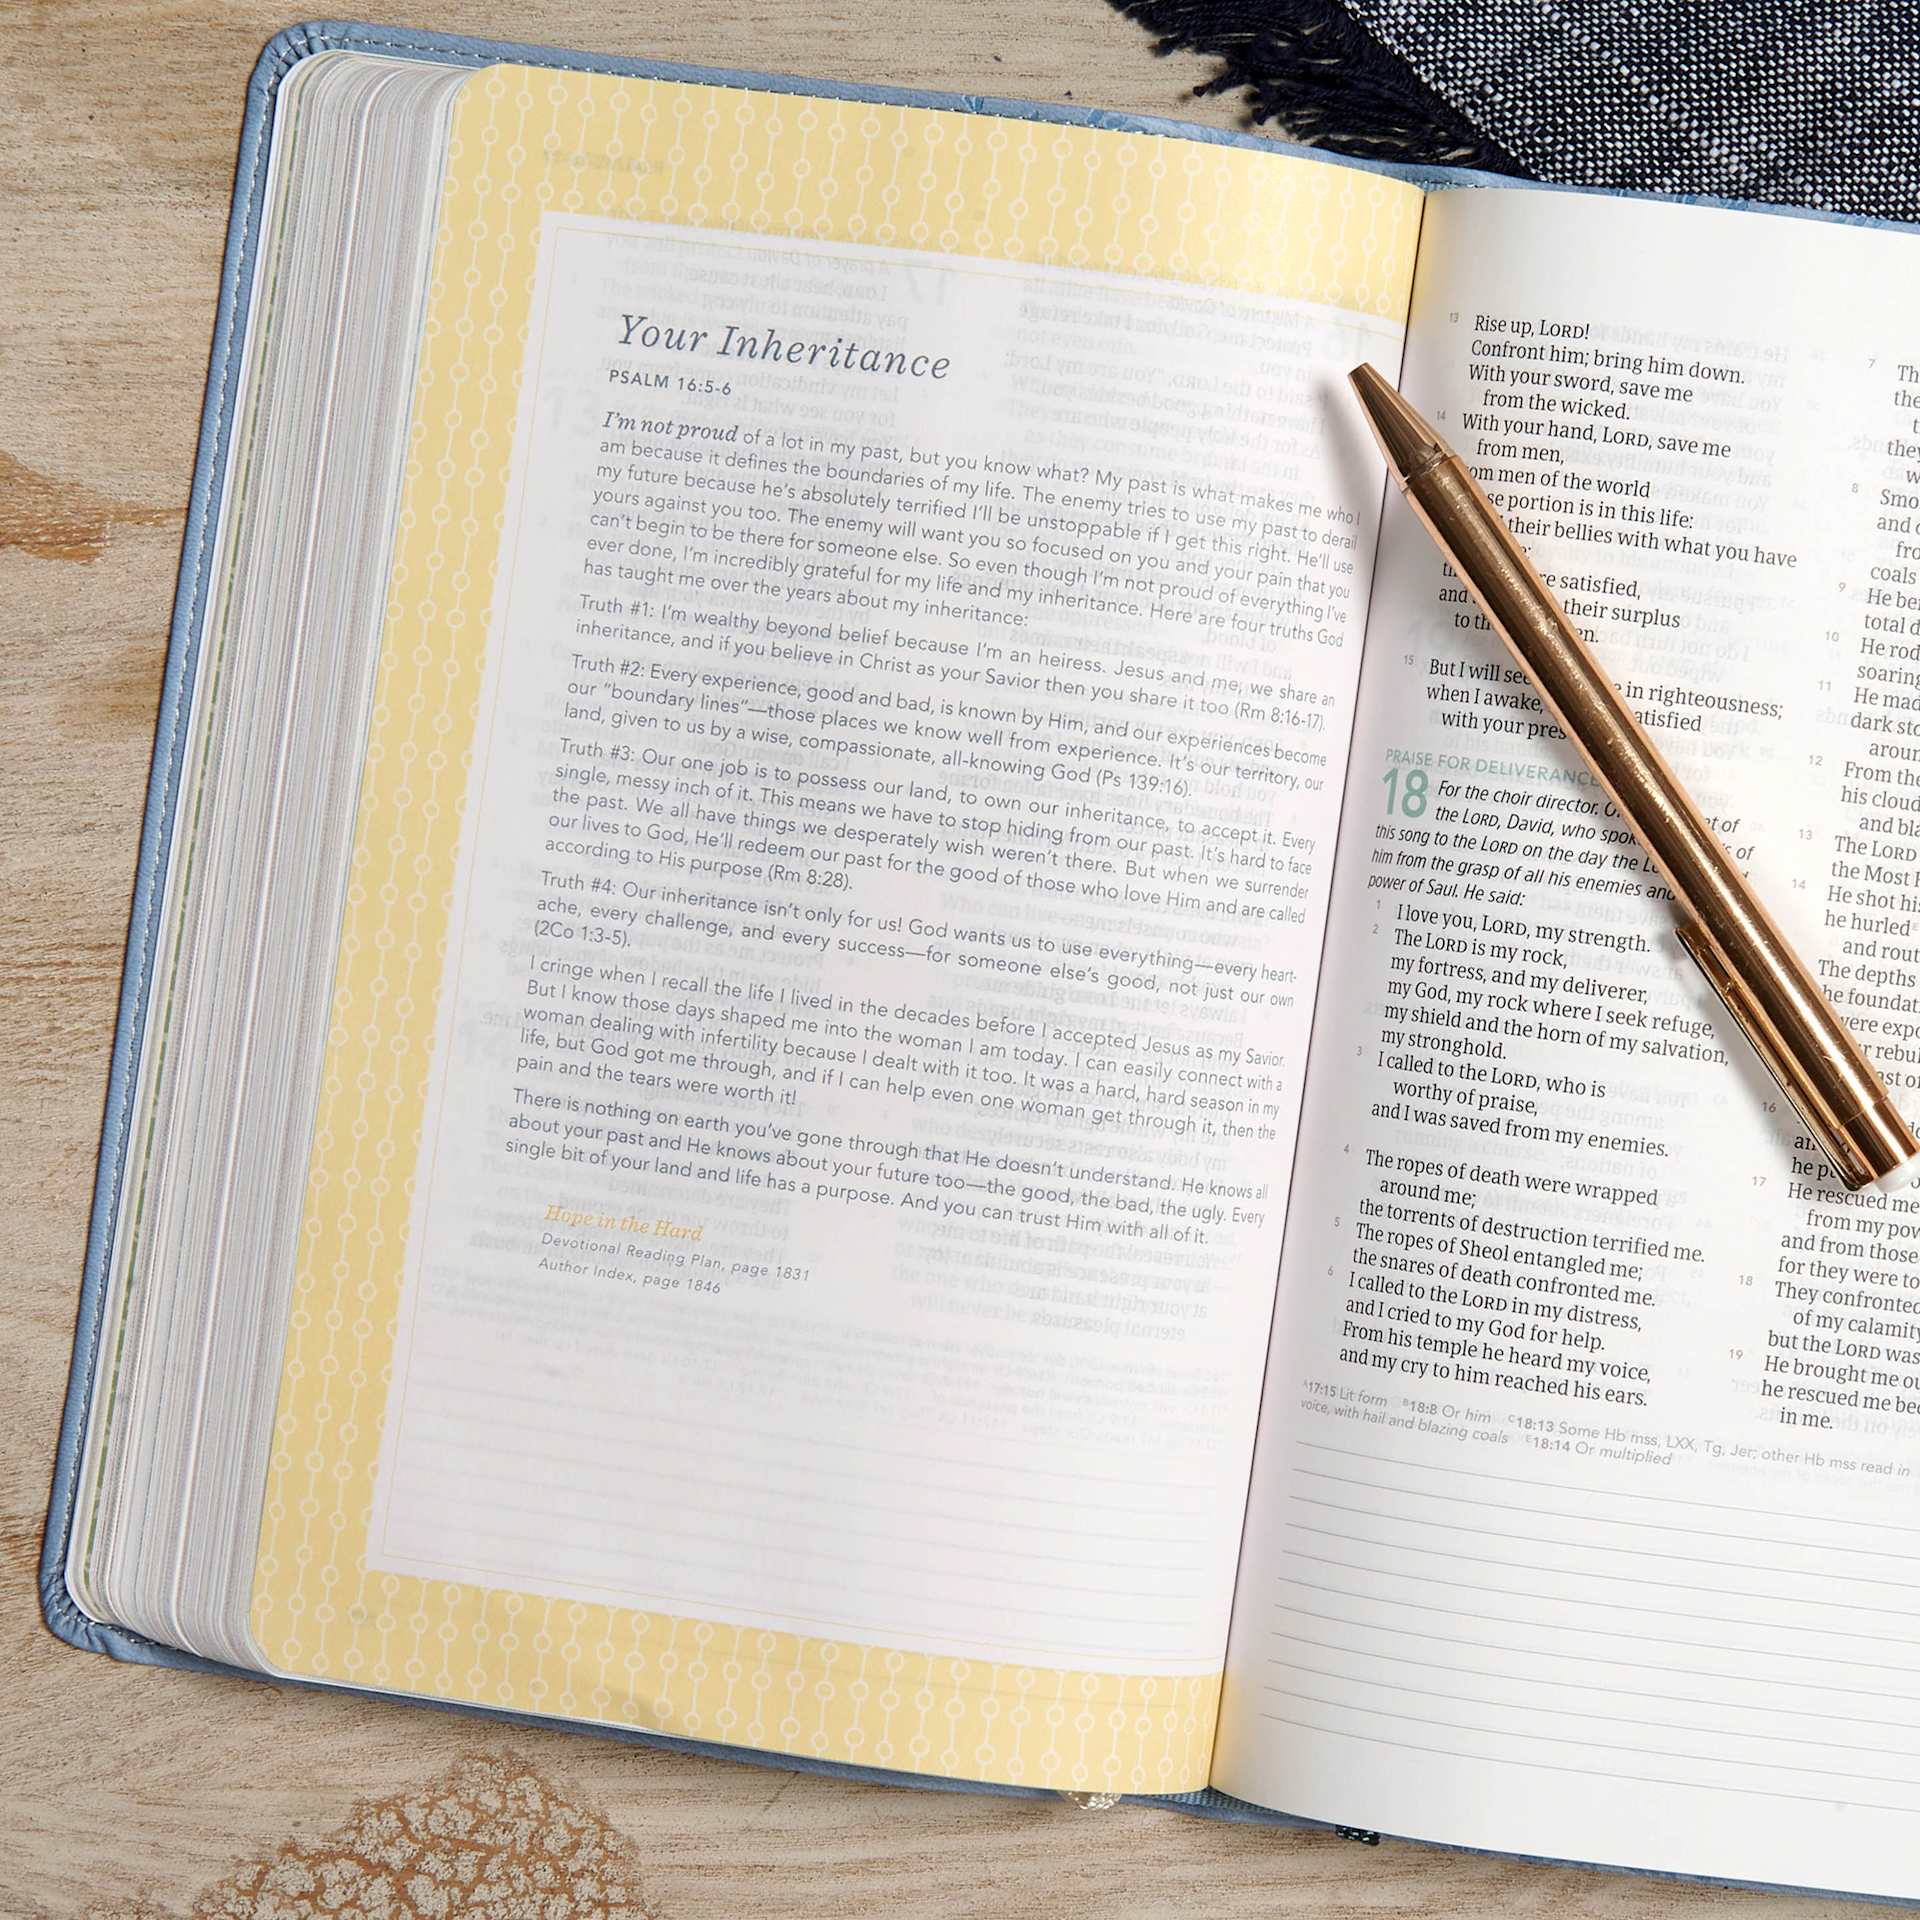 Your Inheritance
PSALM 16:5-6
I'm not proud of a lot in my past, but you know what? My past is what makes me who I
am because it defines the boundaries of my life. The enemy tries to use my past to derail
my future because he's absolutely terrified I'll be unstoppable if I get this right. He'll use
yours against you too. The enemy will want you so focused on you and your pain that you
can't begin to be there for someone else. So even though I'm not proud of everything I've
ever done, I'm incredibly grateful for my life and my inheritance. Here are four truths God
has taught me over the years about my inheritance:
Truth #1: I'm wealthy beyond belief because I'm an heiress. Jesus and me, we share an
inheritance, and if you believe in Christ as your Savior then you share it too (Rm 8:16-17).
Truth #2: Every experience, good and bad, is known by Him, and our experiences become
our "boundary lines"—those places we know well from experience. It's our territory, our
land, given to us by a wise, compassionate, all-knowing God (Ps 139:16).
Truth #3: Our one job is to possess our land, to own our inheritance, to accept it. Every
single, messy inch of it. This means we have to stop hiding from our past. It's hard to face
the past. We all have things we desperately wish weren't there. But when we surrender
our lives to God, He'll redeem our past for the good of those who love Him and are called
according to His purpose (Rm 8:28).
Truth #4: Our inheritance isn't only for us! God wants us to use everything—every heart-
ache, every challenge, and every success—for someone else's good, not just our own
(2Co 1:3-5).
I cringe when I recall the life I lived in the decades before I accepted Jesus as my Savior.
But I know those days shaped me into the woman I am today. I can easily connect with a
woman dealing with infertility because I dealt with it too. It was a hard, hard season in my
life, but God got me through, and if I can help even one woman get through it, then the
pain and the tears were worth it!
There is nothing on earth you've gone through that He doesn't understand. He knows all
about your past and He knows about your future too—the good, the bad, the ugly. Every
single bit of your land and life has a purpose. And you can trust Him with all of it.
Hope in the Hard
Devotional Reading Plan, page 1831
Author Index, page 1846
13 Rise up, LORD!
Confront him; bring him down.
With your sword, save me
from the wicked.
14 With your hand, LORD, save me
from men,
men of the world
portion is in this life:
their bellies with what you have
satisfied,
and their surplus
to
15 But I will see in righteousness;
when I awake, satisfied
with your
PRAISE FOR DELIVERANCE
18 For the choir director. of
the LORD, David, who of
this song to the LORD on the day the
him from the grasp of all his enemies and
power of Saul. He said:
1 I love you, LORD, my strength.
2 The LORD is my rock,
my fortress, and my deliverer,
my God, my rock where I seek refuge,
my shield and the horn of my salvation,
my stronghold.
3 I called to the LORD, who is
worthy of praise,
and I was saved from my enemies.
4 The ropes of death were wrapped
around me;
the torrents of destruction terrified me.
5 The ropes of Sheol entangled me;
the snares of death confronted me.
6 I called to the LORD in my distress,
and I cried to my God for help.
From his temple he heard my voice,
and my cry to him reached his ears.
7
the
they
8
and
coals
9 He
total
10 He
soaring
11 He
dark
12 From the
his
and
13 The LORD
the Most
14 He shot his
he hurled
and
The depths
16
he
17 He rescued me
from my
and from those
for they were
18 They confronted
of my calamity
but the LORD was
19 He brought me
he rescued me
in me.
A17:15 Lit form B18:8 Or him C18:13 Some Hb mss, LXX, Tg, Jer; other Hb mss read in
voice, with hail and blazing coals E18:14 Or multiplied